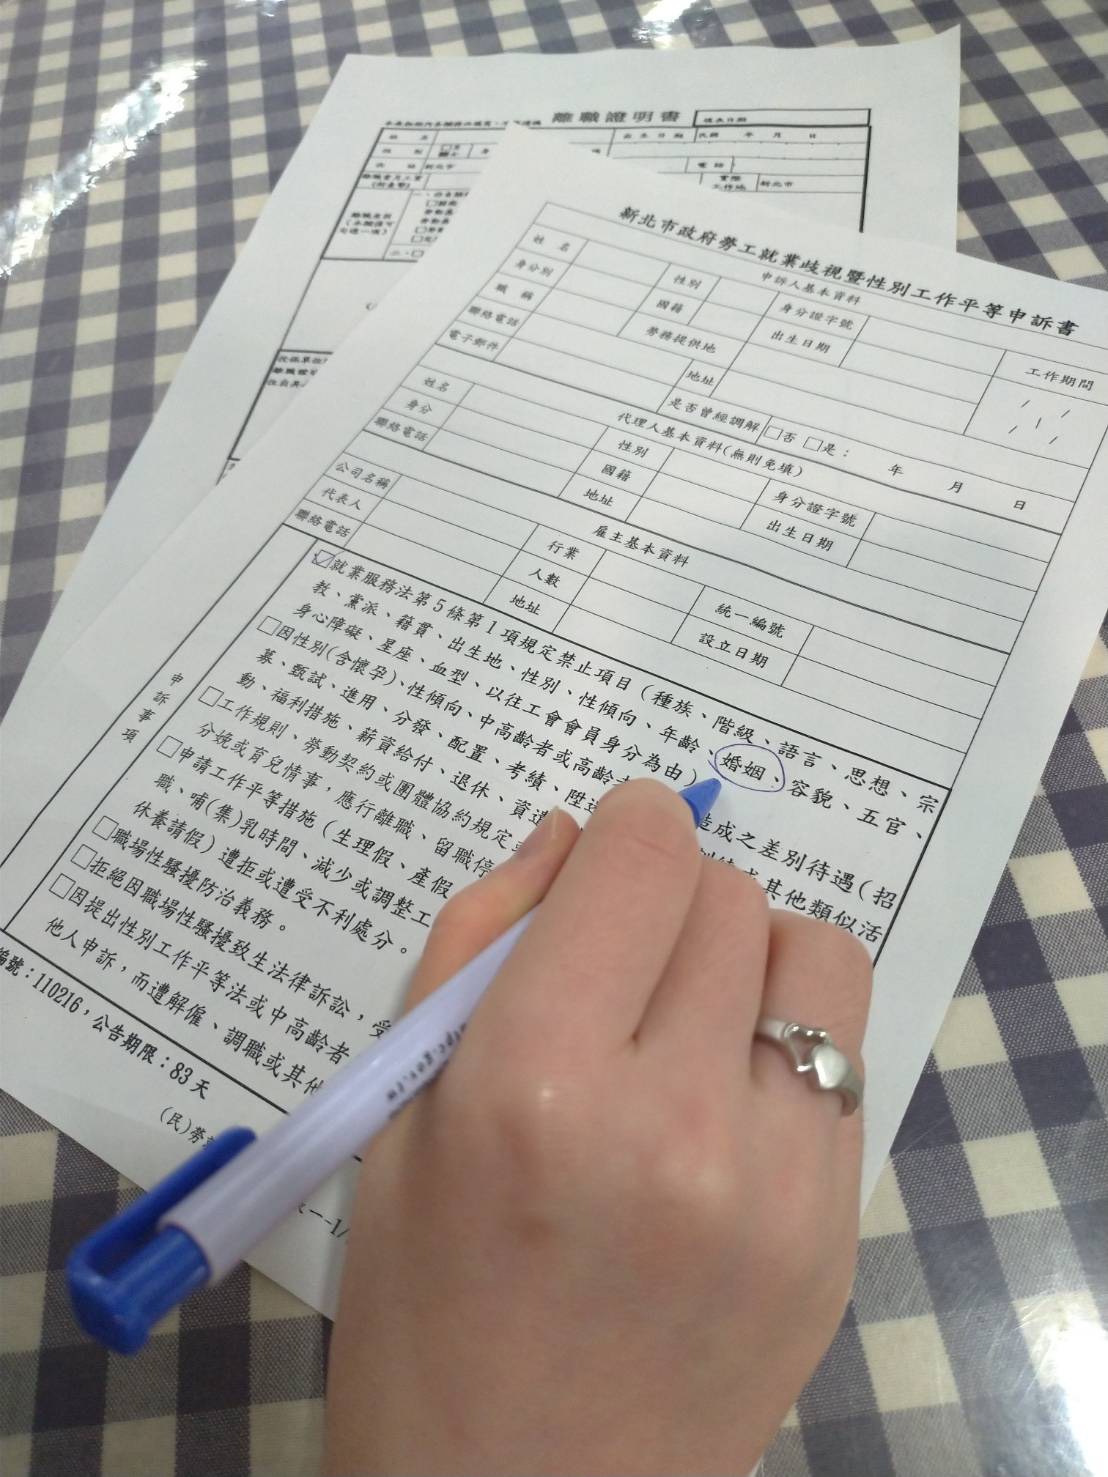 離職證明書
填表日期
姓名
出生日期
民國 年 月 日
電話
新北市
實際工作地
新北市
新北市政府勞工就業歧視暨性別工作平等申訴書
申訴人基本資料
姓名
性別
身分證字號
工作期間
身分別
國籍
出生日期
職稱
勞務提供地
聯絡電話
地址
電子郵件
是否曾經調解
□否 □是: 年 月 日
代理人基本資料(無則免填)
姓名
性別
身分證字號
身分
國籍
出生日期
聯絡電話
地址
雇主基本資料
公司名稱
行業
統一編號
代表人
人數
設立日期
聯絡電話
地址
申訴事項
☑就業服務法第5條第1項規定禁止項目(種族、階級、語言、思想、宗
教、黨派、籍貫、出生地、性別、性傾向、年齡、婚姻、容貌、五官、
身心障礙、星座、血型、以往工會會員身分為由)
□因性別(含懷孕)、性傾向、中高齡者或高齡者 造成之差別待遇(招
募、甄試、進用、分發、配置、考績、陞 其他類似活
動、福利措施、薪資給付、退休、資遣
□工作規則、勞動契約或團體協約規定
分娩或育兒情事,應行離職、留職停
□申請工作平等措施(生理假、產假
職、哺(集)乳時間、減少或調整工
休養請假)遭拒或遭受不利處分。
□職場性騷擾防治義務。
□拒絕因職場性騷擾致生法律訴訟,受
□因提出性別工作平等法或中高齡者
他人申訴,而遭解僱、調職或其他
編號:110216,公告期限:83天
(民)勞